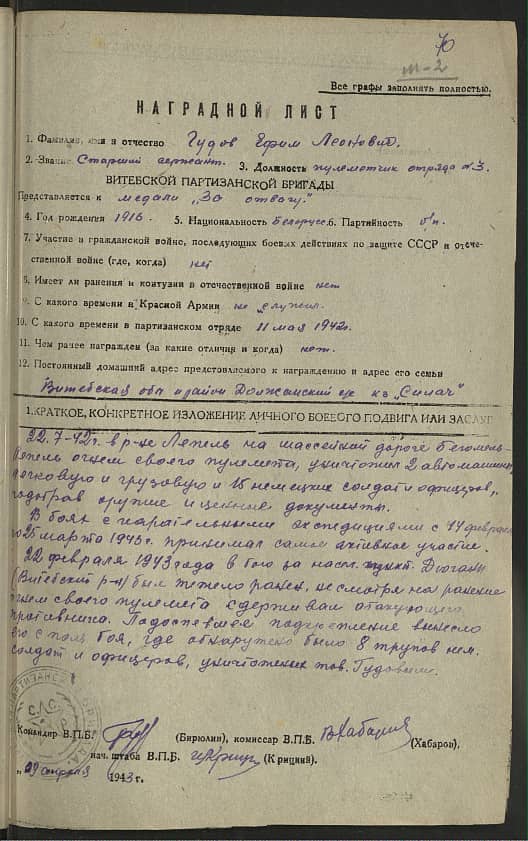 70
т-2
Все графы заполнять полностью.
НАГРАДНОЙ ЛИСТ
1. Фамилия, имя и отчество Гудов Ефим Леонович.
2. Звание Старший сержант. 3. Должность пулеметчик отряда №3.
ВИТЕБСКОЙ ПАРТИЗАНСКОЙ БРИГАДЫ
Представляется к медали „За отвагу".
4. Год рождения 1916. 5. Национальность Белорусс. 6. Партийность б/п.
7. Участие в гражданской войне, последующих боевых действиях по защите СССР и отече-
ственной войне (где, когда) нет
8. Имеет ли ранения и контузии в отечественной войне нет
9. С какого времени в Красной Армии не служил.
10. С какого времени в партизанском отряде 11 мая 1942г.
11. Чем ранее награжден (за какие отличия и когда) нет.
12. Постоянный домашний адрес представляемого к награждению и адрес его семьи
Витебская обл и район Должанский с/с к-з „Силач"
1. КРАТКОЕ, КОНКРЕТНОЕ ИЗЛОЖЕНИЕ ЛИЧНОГО БОЕВОГО ПОДВИГА ИЛИ ЗАСЛУГ
22.7-42г. в р-не Лепель на шассейной дороге Бегомль-
Лепель огнем своего пулемета, уничтожил 2 автомашины
легковую и грузовую и 15 немецких солдат и офицеров,
подобрав оружие и ценные документы.
В боях с карательными экспедициями с 14 февраля
по 25 марта 1943г. принимал самое активное участие.
22 февраля 1943 года в бою за насл. пункт
(Витебский р-н) был тяжело ранен, несмотря на ранение
огнем своего пулемета сдерживал атакующего
противника. Подоспевшее подкрепление вынесло
его с поля боя, где обнаружено было 8 трупов нем.
солдат и офицеров, уничтоженных тов. Гудовым.
Командир В.П.Б. (Бирюлин), комиссар В.П.Б. ВХабаров (Хабаров),
нач. штаба В.П.Б. (Крицкий).
„29 апреля 1943 г.